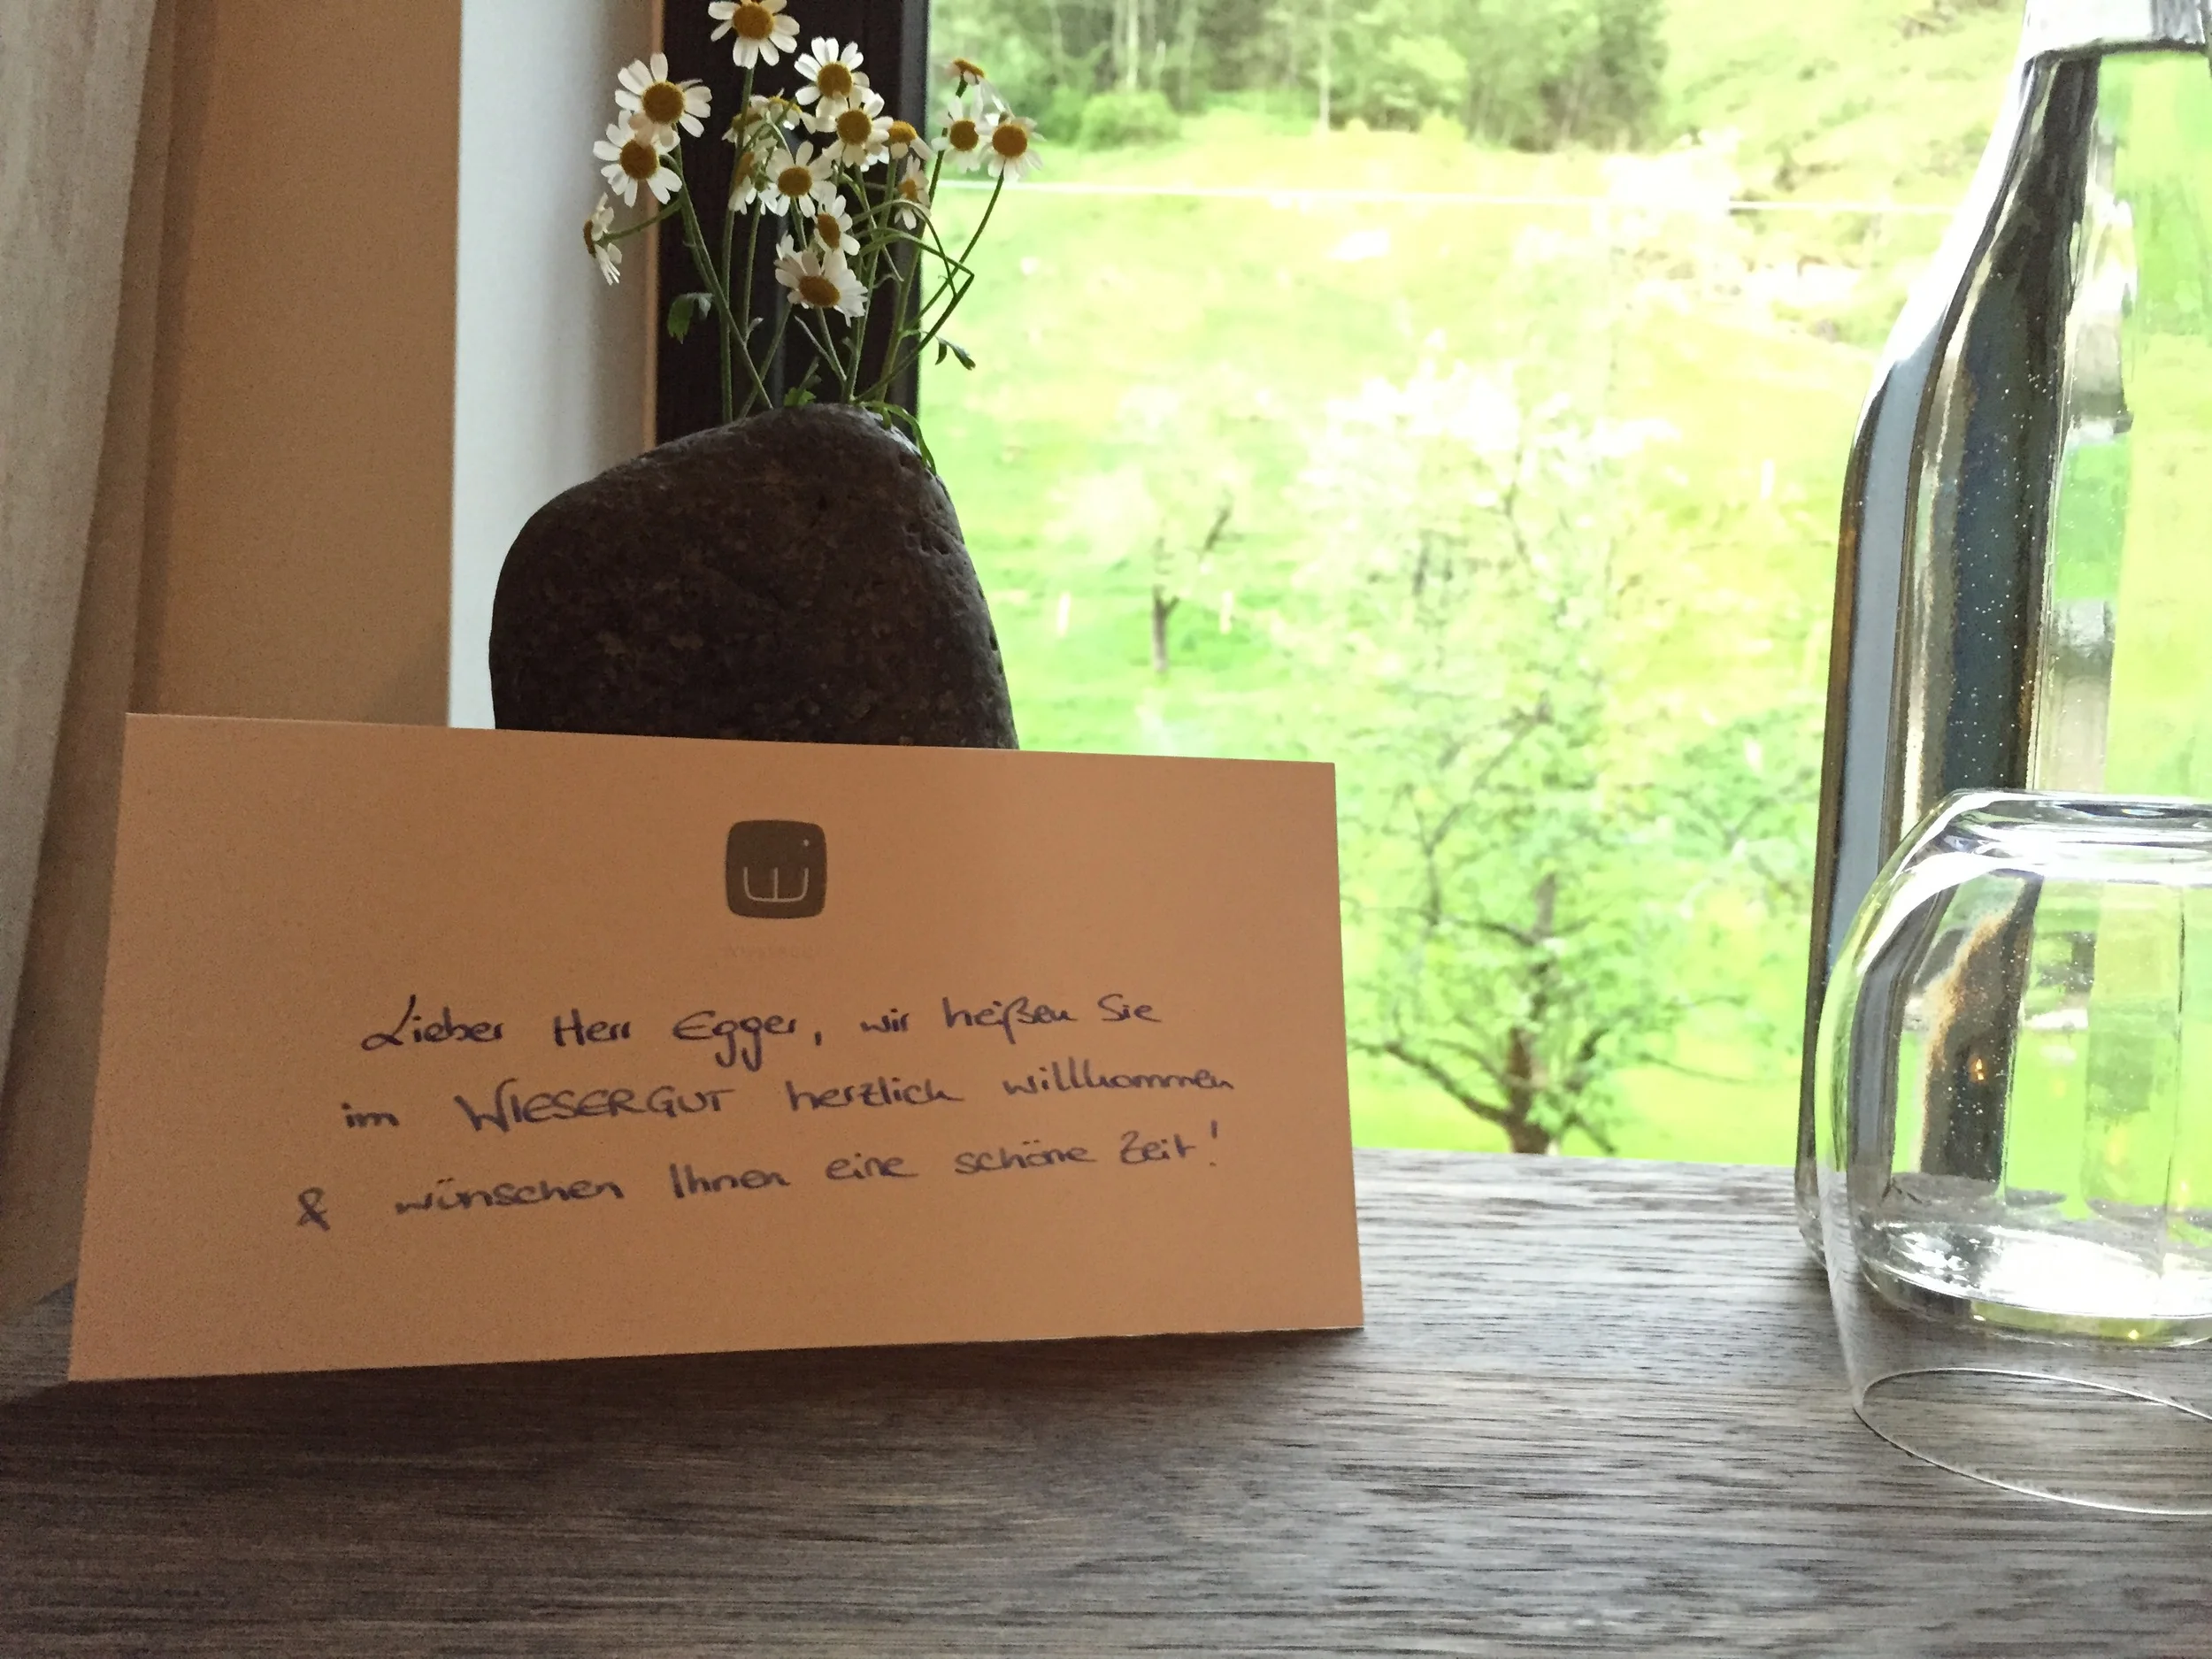 Lieber Herr Egger, wir heißen Sie
im WIESERGUT herzlich willkommen
& wünschen Ihnen eine schöne Zeit!